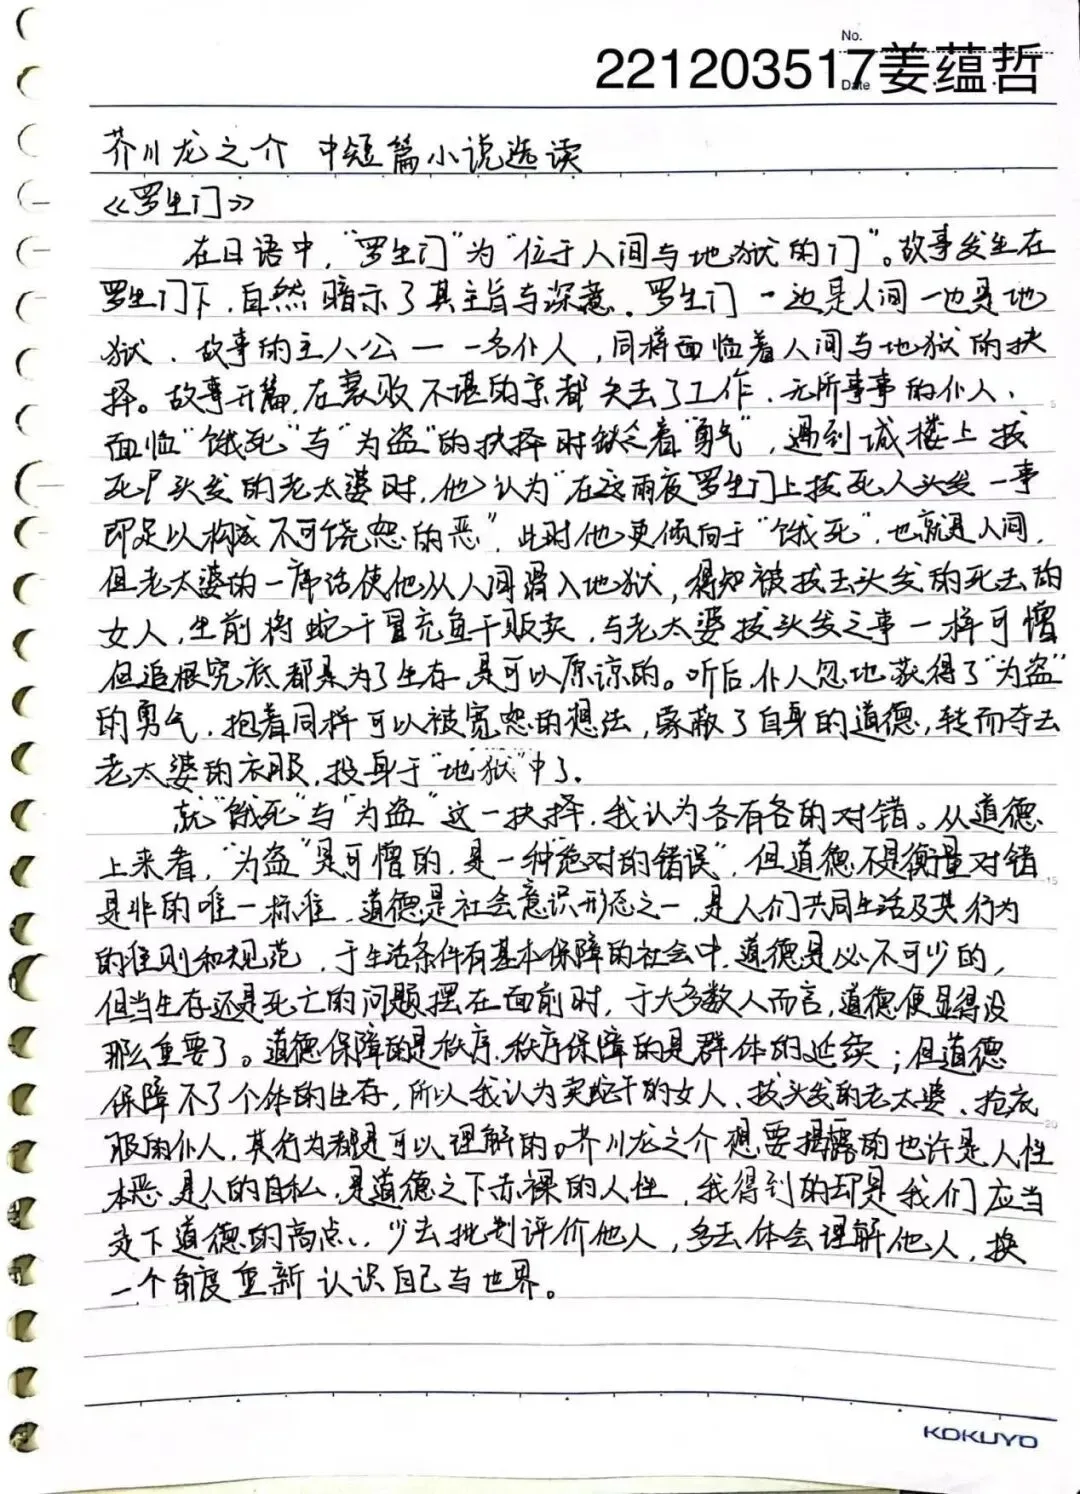 No.
221203517姜蕴哲
Date
芥川龙之介 中短篇小说选读
《罗生门》
在日语中,“罗生门”为“位于人间与地狱的门”。故事发生在
罗生门下,自然暗示了其主旨与深意。罗生门一边是人间一边是地
狱、故事的主人公——一名仆人,同样面临着人间与地狱的抉
择。故事开篇,在衰败不堪的京都失去了工作、无所事事的仆人、
面临“饿死”与“为盗”的抉择时缺乏着“勇气”,遇到城楼上拔
死尸头发的老太婆时,他认为“在这雨夜罗生门上拔死人头发一事
即足以构成不可饶恕的恶”,此时他更倾向于“饿死”,也就是人间,
但老太婆的一席话使他从人间滑入地狱,得知被拔去头发的死去的
女人,生前将蛇干冒充鱼干贩卖,与老太婆拔头发之事一样可憎
但追根究底都是为了生存,是可以原谅的。听后,仆人忽地获得了“为盗”
的勇气,抱着同样可以被宽恕的想法,蒙蔽了自身的道德,转而夺去
老太婆的衣服,投身于“地狱”中了。
就“饿死”与“为盗”这一抉择,我认为各有各的对错。从道德
上来看,“为盗”是可憎的,是一种绝对的错误”,但道德不是衡量对错
是非的唯一标准,道德是社会意识形态之一,是人们共同生活及其行为
的准则和规范,于生活条件有基本保障的社会中,道德是必不可少的,
但当生存还是死亡的问题摆在面前时,于大多数人而言,道德便显得没
那么重要了。道德保障的是秩序,秩序保障的是群体的延续;但道德
保障不了个体的生存,所以我认为卖蛇干的女人、拔头发的老太婆、抢衣
服的仆人,其行为都是可以理解的。芥川龙之介想要揭露的也许是人性
本恶,是人的自私,是道德之下赤裸的人性,我得到的却是我们应当
走下道德的高点、少去批判评价他人,多去体会理解他人,换
一个角度重新认识自己与世界。
KOKUYO